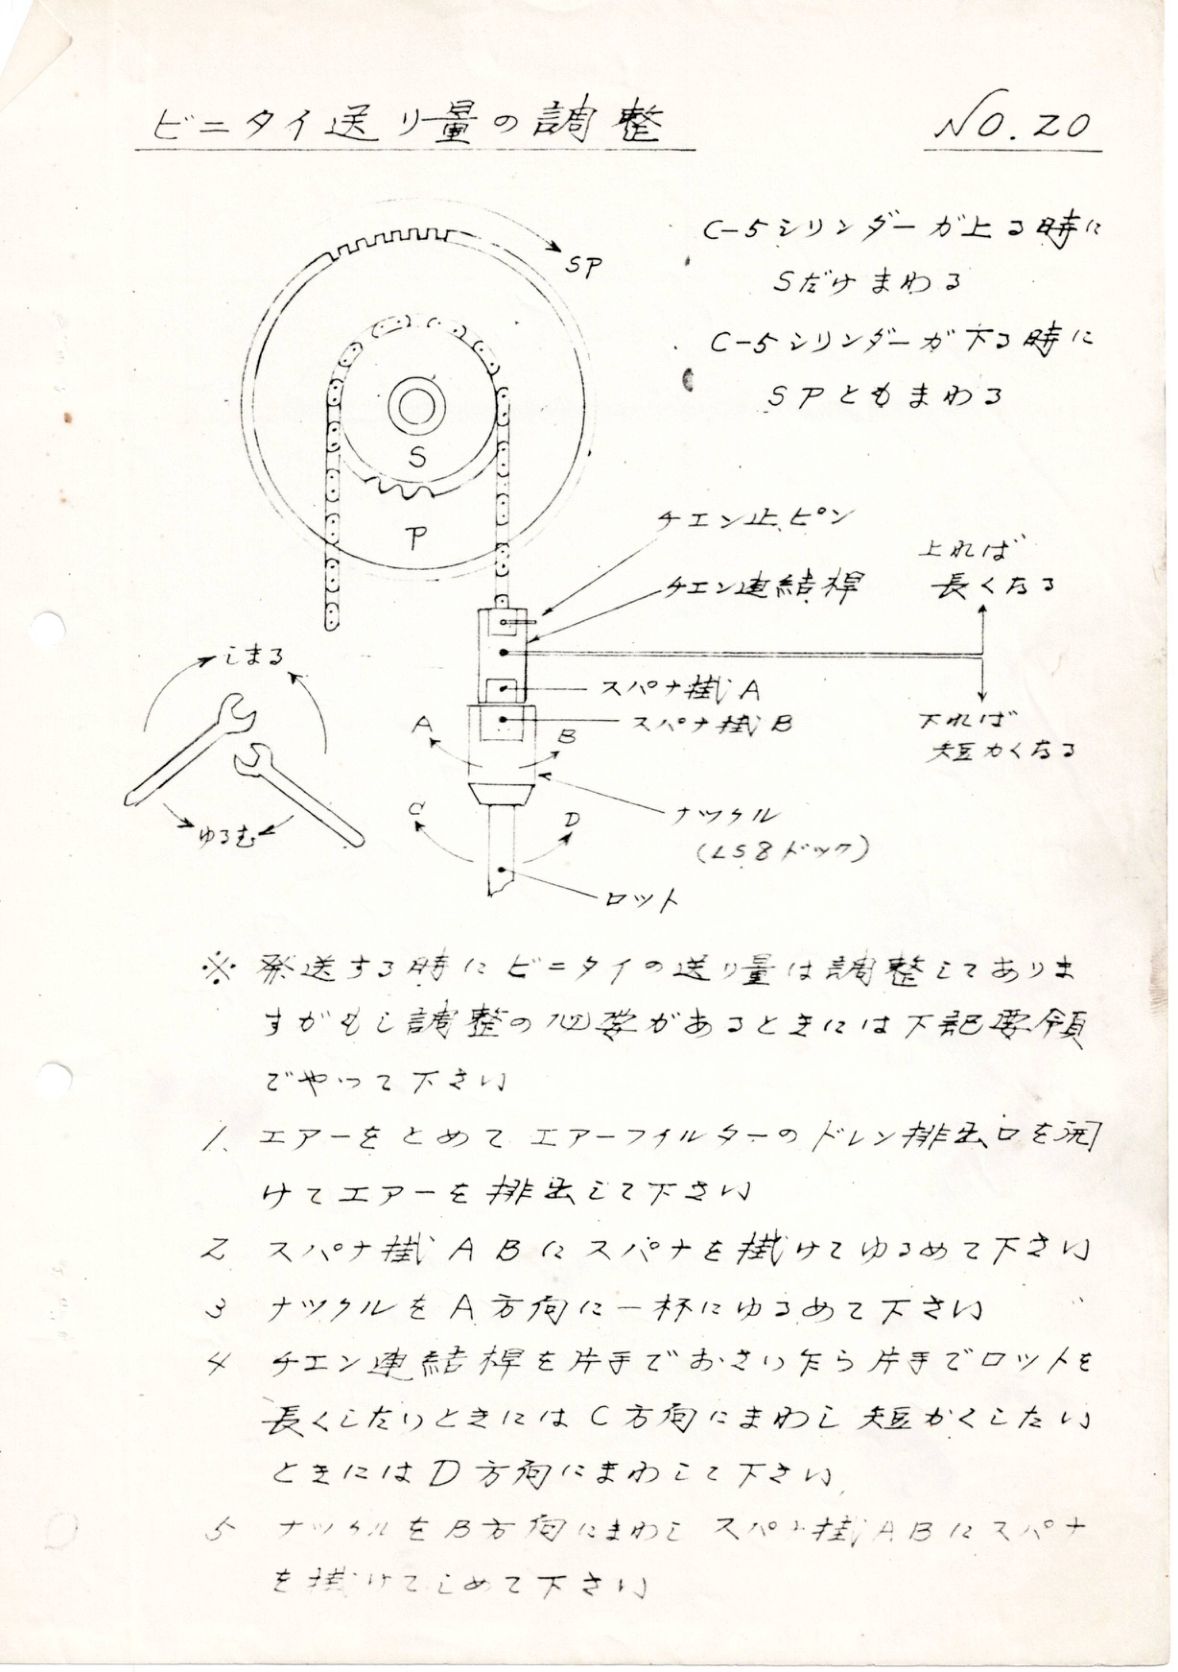 ビニタイ送り量の調整
NO.20
C-5シリンダーが上る時に
Sだけまわる
C-5シリンダーが下る時に
SPともまわる
SP
S
P
チエン止ピン
チエン連結桿
上れば
長くなる
しまる
スパナ掛A
スパナ掛B
下れば
短かくなる
A
B
ゆるむ
C
D
ナツクル
(LS8ドック)
ロット
※ 発送する時にビニタイの送り量は調整してありま
すがもし調整の必要があるときには下記要領
でやって下さい
1. エアーをとめてエアーフイルターのドレン排出口を開
けてエアーを排出して下さい
2 スパナ掛ABにスパナを掛けてゆるめて下さい
3 ナツクルをA方向に一杯にゆるめて下さい
4 チエン連結桿を片手でおさい乍ら片手でロットを
長くしたいときにはC方向にまわし短かくしたい
ときにはD方向にまわして下さい
5 ナツクルをB方向にまわしスパナ掛ABにスパナ
を掛けてしめて下さい